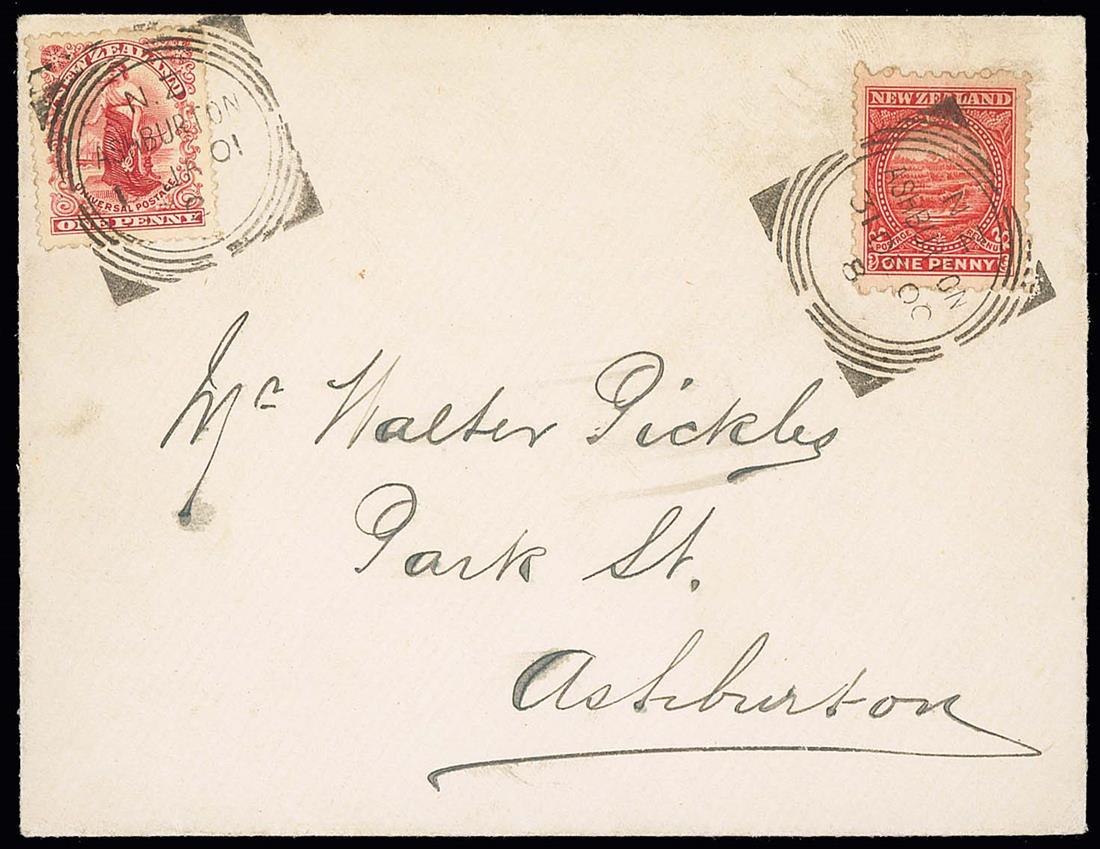 NEW ZEALAND
UNIVERSAL POSTAGE
ONE PENNY
N.Z
ASHBURTON
1 JA 01
NEW ZEALAND
POSTAGE REVENUE
ONE PENNY
N
ASHBURTON
31
OC
8
Mr Walter Pickles
Park St.
Ashburton